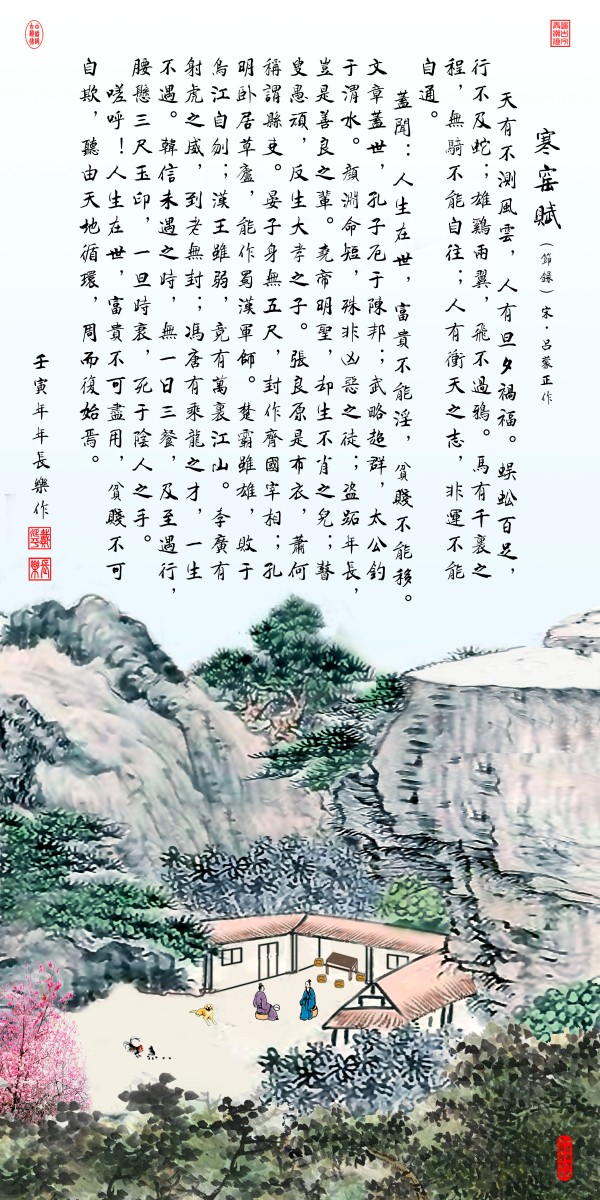 寒窑賦（節錄）宋·呂蒙正作
天有不測風雲，人有旦夕禍福。蜈蚣百足，
行不及蛇；雄鷄兩翼，飛不過鴉。馬有千裏之
程，無騎不能自往；人有衝天之志，非運不能
自通。
蓋聞：人生在世，富貴不能淫，貧賤不能移。
文章蓋世，孔子厄于陳邦；武略超群，太公釣
于渭水。顏淵命短，殊非凶惡之徒；盗跖年長，
豈是善良之輩。堯帝明聖，却生不肖之兒；瞽
叟愚頑，反生大孝之子。張良原是布衣，蕭何
稱謂縣吏。晏子身無五尺，封作齊國宰相；孔
明卧居草廬，能作蜀漢軍師。楚霸雖雄，敗于
烏江自刎；漢王雖弱，竟有萬裏江山。李廣有
射虎之威，到老無封；馮唐有乘龍之才，一生
不遇。韓信未遇之時，無一日三餐，及至遇行，
腰懸三尺玉印，一旦時衰，死于陰人之手。
嗟呼！人生在世，富貴不可盡用，貧賤不可
自欺，聽由天地循環，周而復始焉。
壬寅年年長樂作